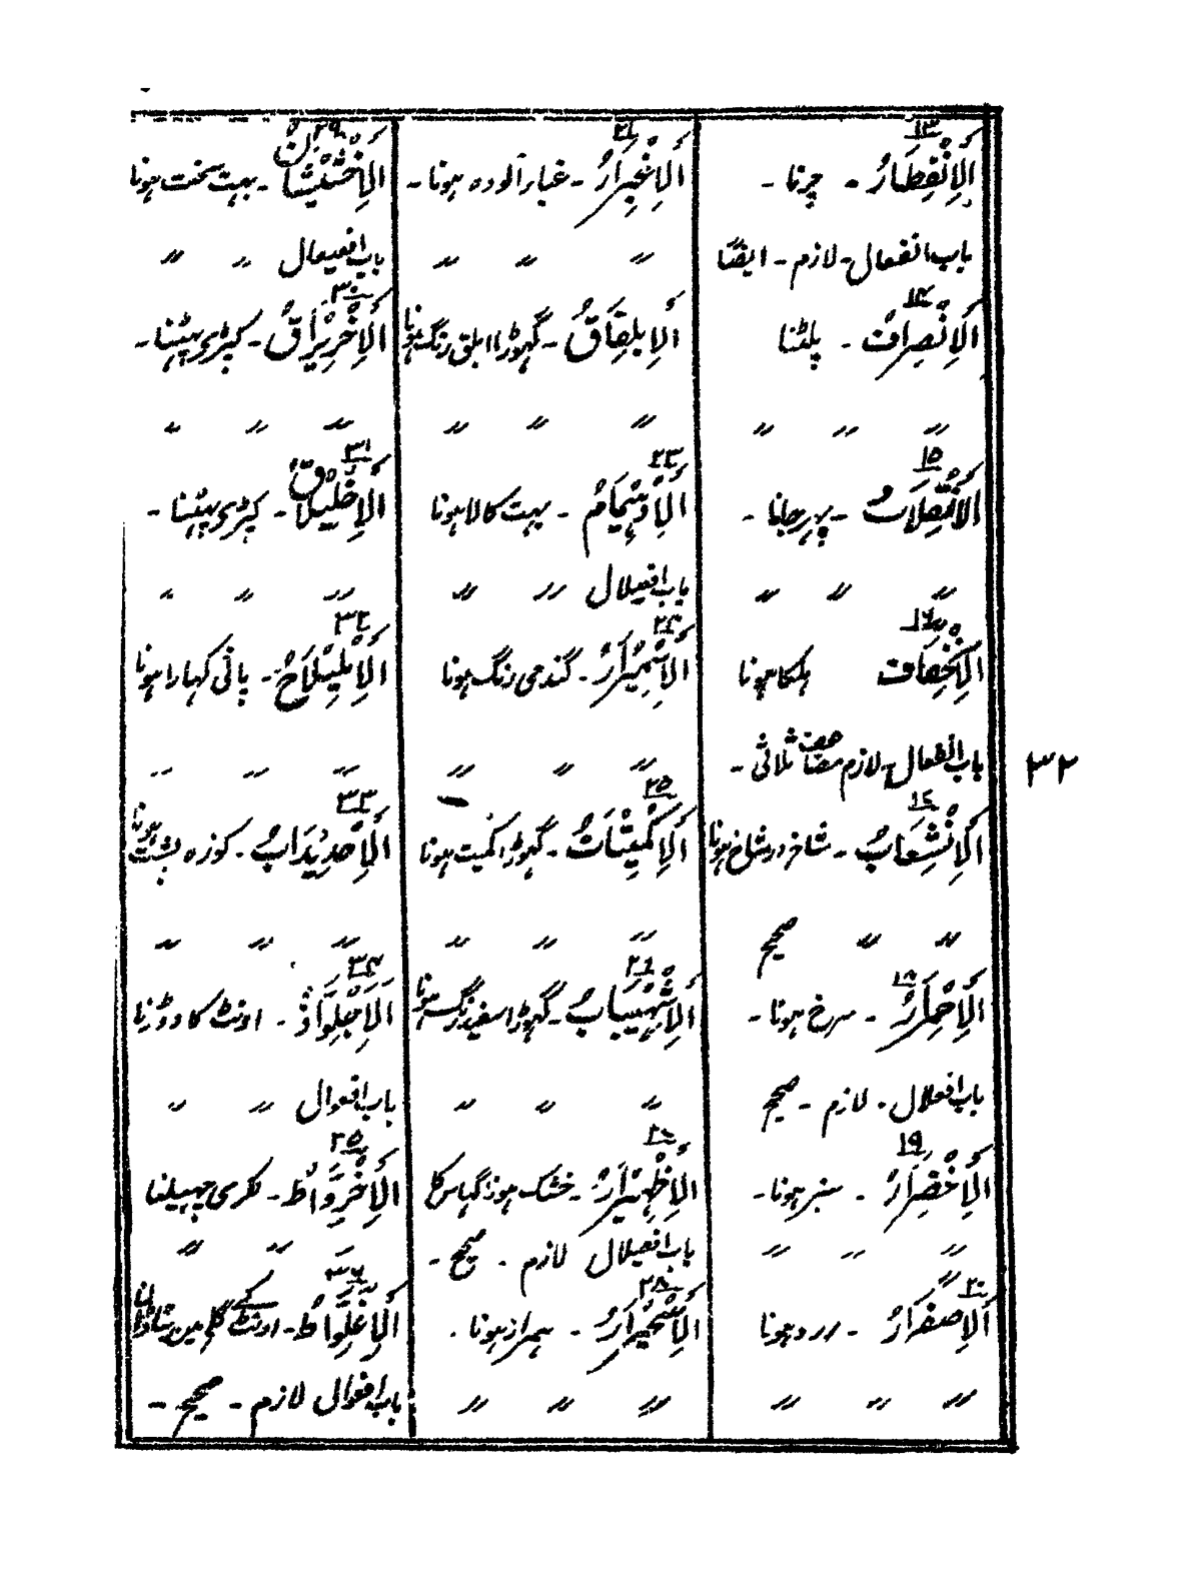 ۱۳
اَلْاِنْفِطَارُ - چرنا -
باب انفعال - لازم - ایضًا
۱۴
اَلْاِنْصِرَافُ - پلٹنا
〃 〃 〃
۱۵
اَلْاِنْقِلَابُ - پہرجانا -
〃 〃 〃
۱۶
ہلکا ہونا
باب انفعال - لازم مضاعف ثلاثی -
۱۷
اَلْاِنْشِعَابُ - شاخ در شاخ ہونا
〃 〃 صحیح
۱۸
اَلْاِحْمِرَارُ - سرخ ہونا -
باب افعلال - لازم - صحیح
۱۹
اَلْاِخْضِرَارُ - سبز ہونا -
〃 〃 〃
۲۰
اَلْاِصْفِرَارُ - زرد ہونا
〃 〃 〃
۲۱
اَلْاِغْبِرَارُ - غبار آلودہ ہونا -
〃 〃 〃
اَلْاِبْلِقَاقُ - گہوڑا ابلق رنگ ہونا
〃 〃 〃
۲۳
اَلْاِدْهِیْمَامُ - بہت کالا ہونا
باب افعیلال 〃 〃
۲۴
اَلْاِسْمِیْرَارُ - گندمی رنگ ہونا
〃 〃 〃
۲۵
اَلْاِکْمِیْتَاتُ - گہوڑا کمیت ہونا
〃 〃 〃
۲۶
اَلْاِشْهِیْبَابُ - گہوڑا سفید رنگ ہونا
〃 〃 〃
۲۷
خشک ہونا گہاس کا
باب افعیلال لازم - صحیح -
۲۸
اَلْاِسْحِیْرَارُ - ہمراز ہونا -
〃 〃 〃
۲۹
اَلْاِخْشِیْشَانُ - بہت سخت ہونا
باب افعیعال 〃 〃
۳۰
اَلْاِخْرِیْرَاقُ - کپڑی پہٹنا -
〃 〃 〃
۳۱
اَلْاِخْلِیْلَاقُ - کپڑی پہٹنا -
〃 〃 〃
۳۲
اَلْاِمْلِیْلَاحُ - پانی کہارا ہونا
〃 〃 〃
۳۳
اَلْاِحْدِیْدَابُ - کوزہ پشت ہونا
〃 〃 〃
۳۴
اَلْاِجْلِوَّاذُ - اونٹ کا دوڑنا
باب افعوال 〃 〃
۳۵
اَلْاِخْرِوَّاطُ - لکری چہیلنا
〃 〃 〃
۳۶
اَلْاِعْلِوَّاطُ - اونٹ کے گلے مین
باب افعوال لازم - صحیح -
۳۲